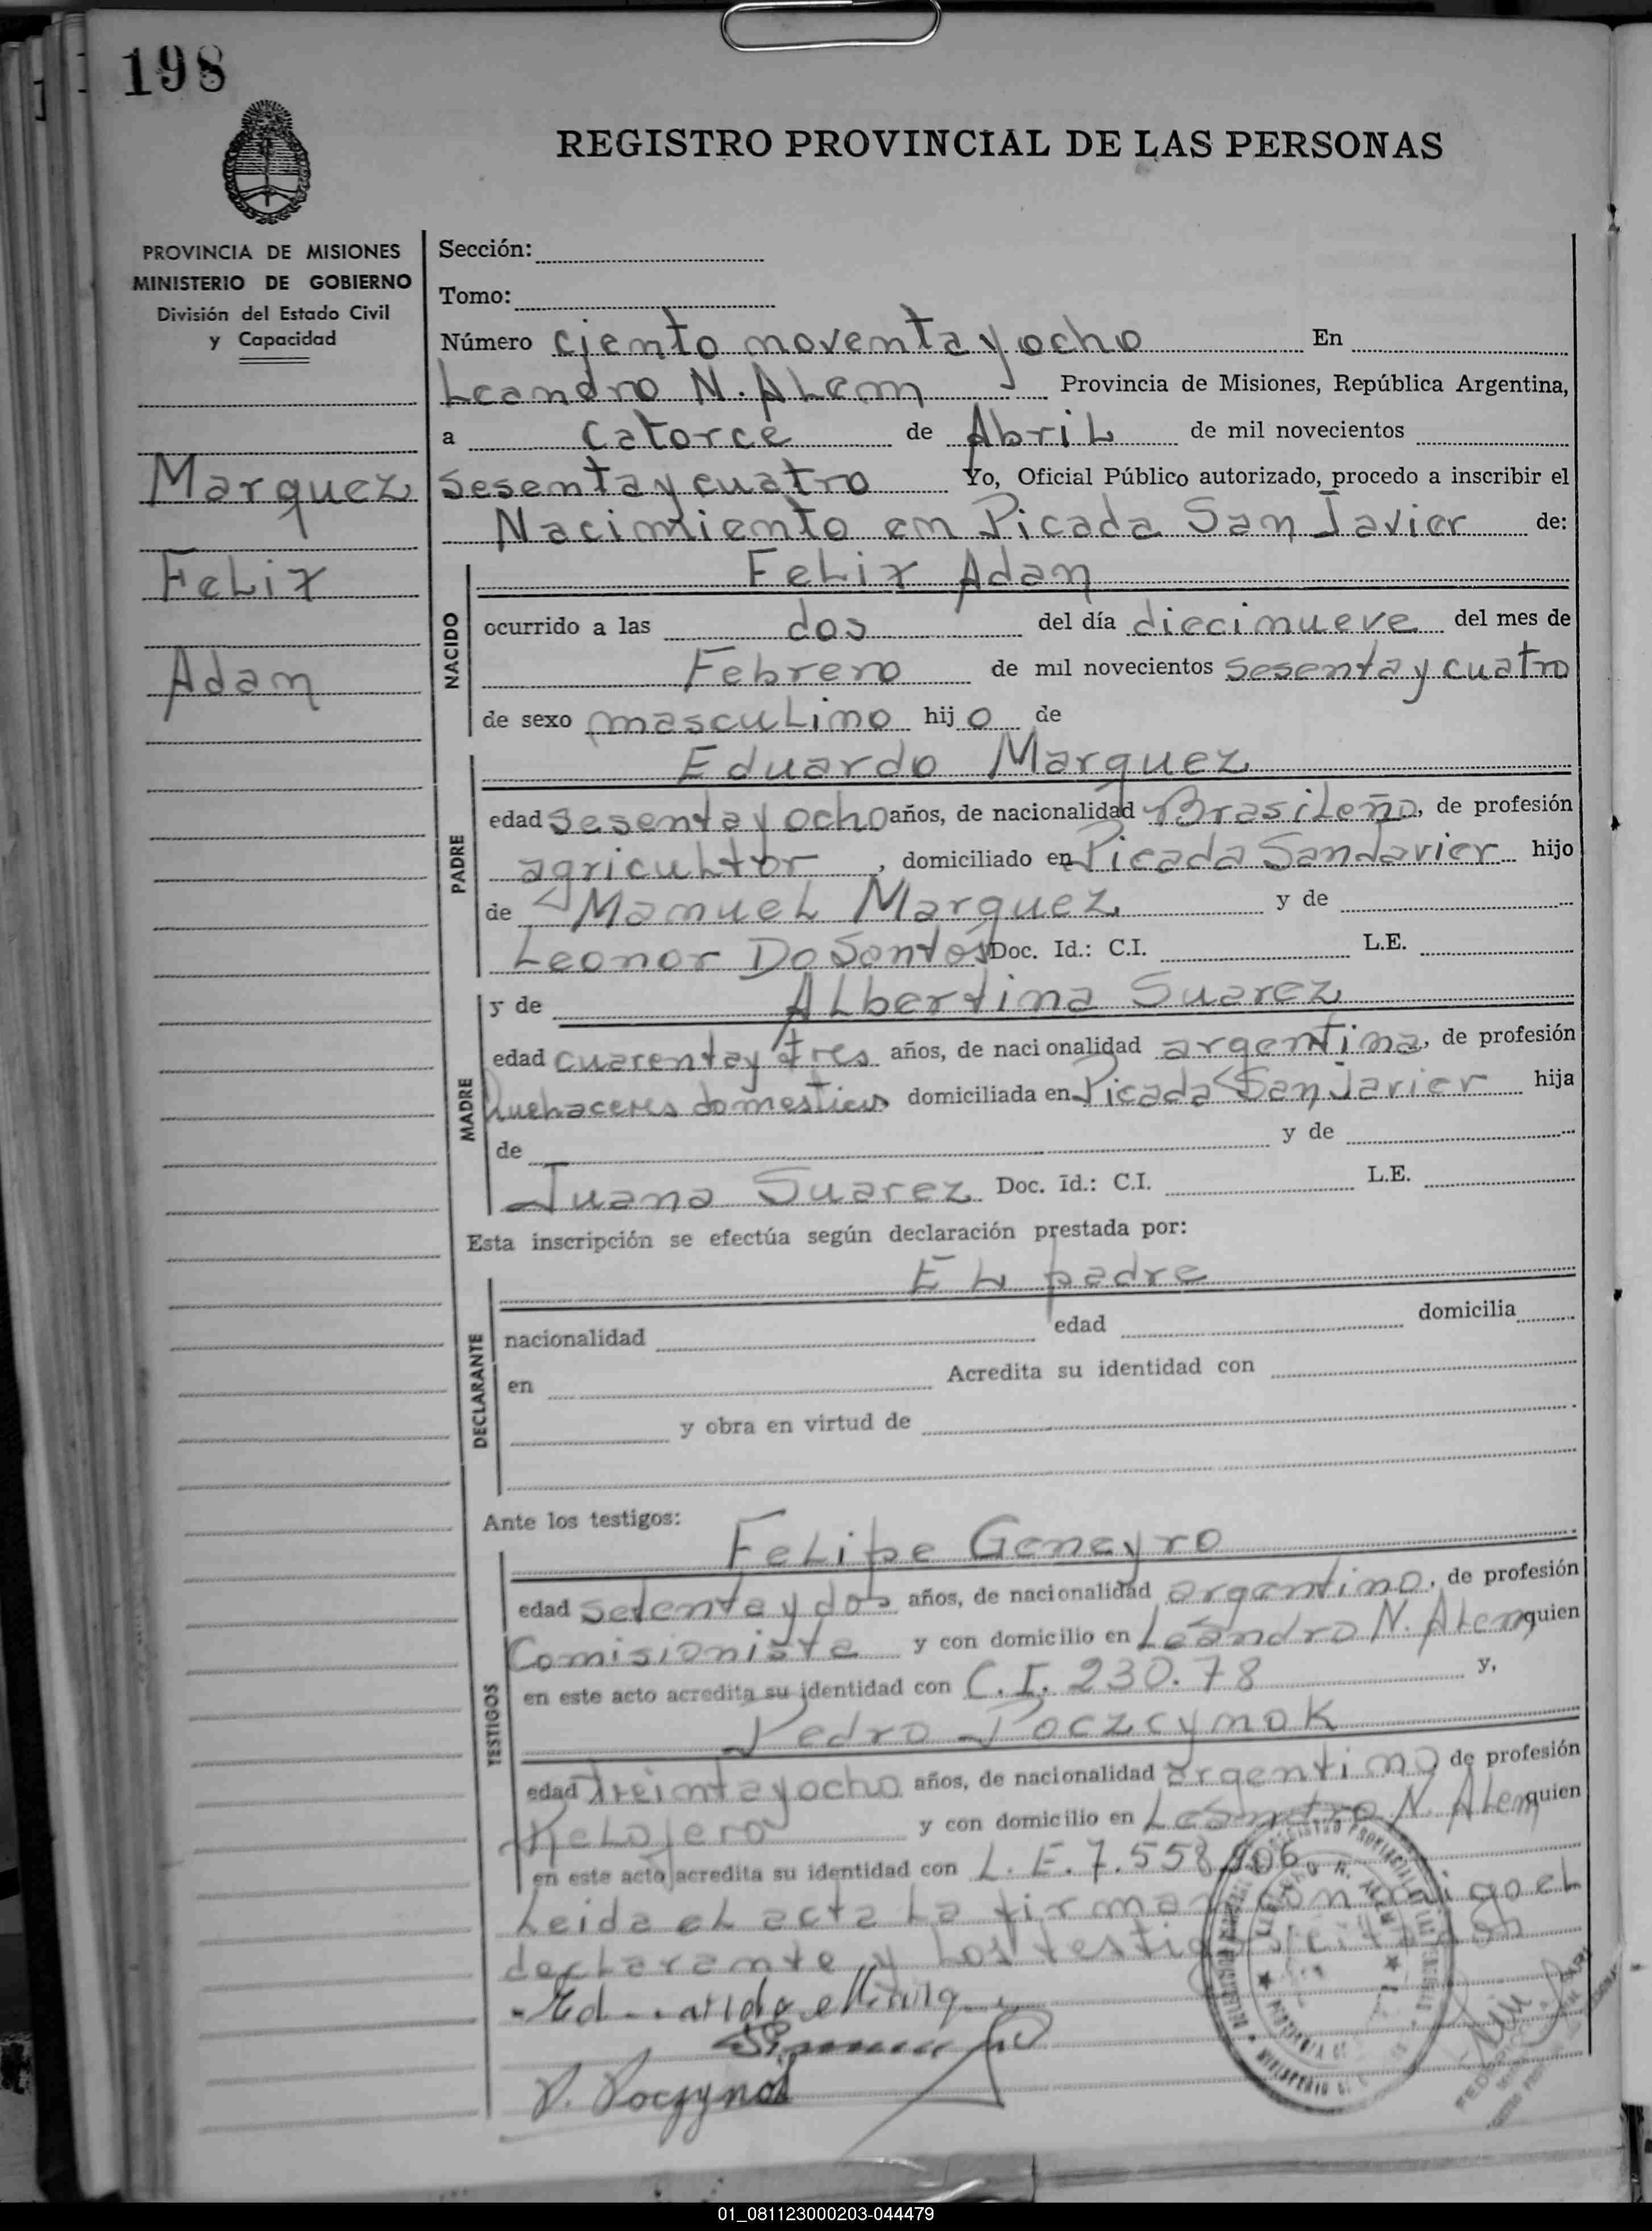 198
REGISTRO PROVINCIAL DE LAS PERSONAS
PROVINCIA DE MISIONES
MINISTERIO DE GOBIERNO
División del Estado Civil
y Capacidad
Marquez
Felix
Adan
Sección:
Tomo:
Número ciento noventa y ocho En
Leandro N. Alem Provincia de Misiones, República Argentina,
a Catorce de Abril de mil novecientos
sesenta y cuatro Yo, Oficial Público autorizado, procedo a inscribir el
Nacimiento en Picada San Javier de:
NACIDO
Felix Adan
ocurrido a las dos del día diecinueve del mes de
Febrero de mil novecientos sesenta y cuatro
de sexo masculino hijo de
PADRE
Eduardo Marquez
edad sesenta y ocho años, de nacionalidad Brasileño, de profesión
agricultor, domiciliado en Picada San Javier hijo
de Manuel Marquez y de
Leonor Do Santos Doc. Id.: C.I. L.E.
MADRE
y de Albertina Suarez
edad cuarenta y tres años, de nacionalidad argentina, de profesión
Quehaceres domesticos domiciliada en Picada San Javier hija
de y de
Juana Suarez Doc. Id.: C.I. L.E.
Esta inscripción se efectúa según declaración prestada por:
DECLARANTE
El padre
nacionalidad edad domicilia
en Acredita su identidad con
y obra en virtud de
Ante los testigos:
TESTIGOS
Felipe Geneyro
edad setenta y dos años, de nacionalidad argentino, de profesión
Comisionista y con domicilio en Leandro N. Alem quien
en este acto acredita su identidad con C.I. 230.78 y,
Pedro Poczcynok
edad treinta y ocho años, de nacionalidad argentino de profesión
Relojero y con domicilio en Leandro N. Alem quien
en este acto acredita su identidad con L.E. 7.558.
Leida el acta la firman conmigo el
declarante y los testigos citados
P. Poczynok
01_081123000203-044479